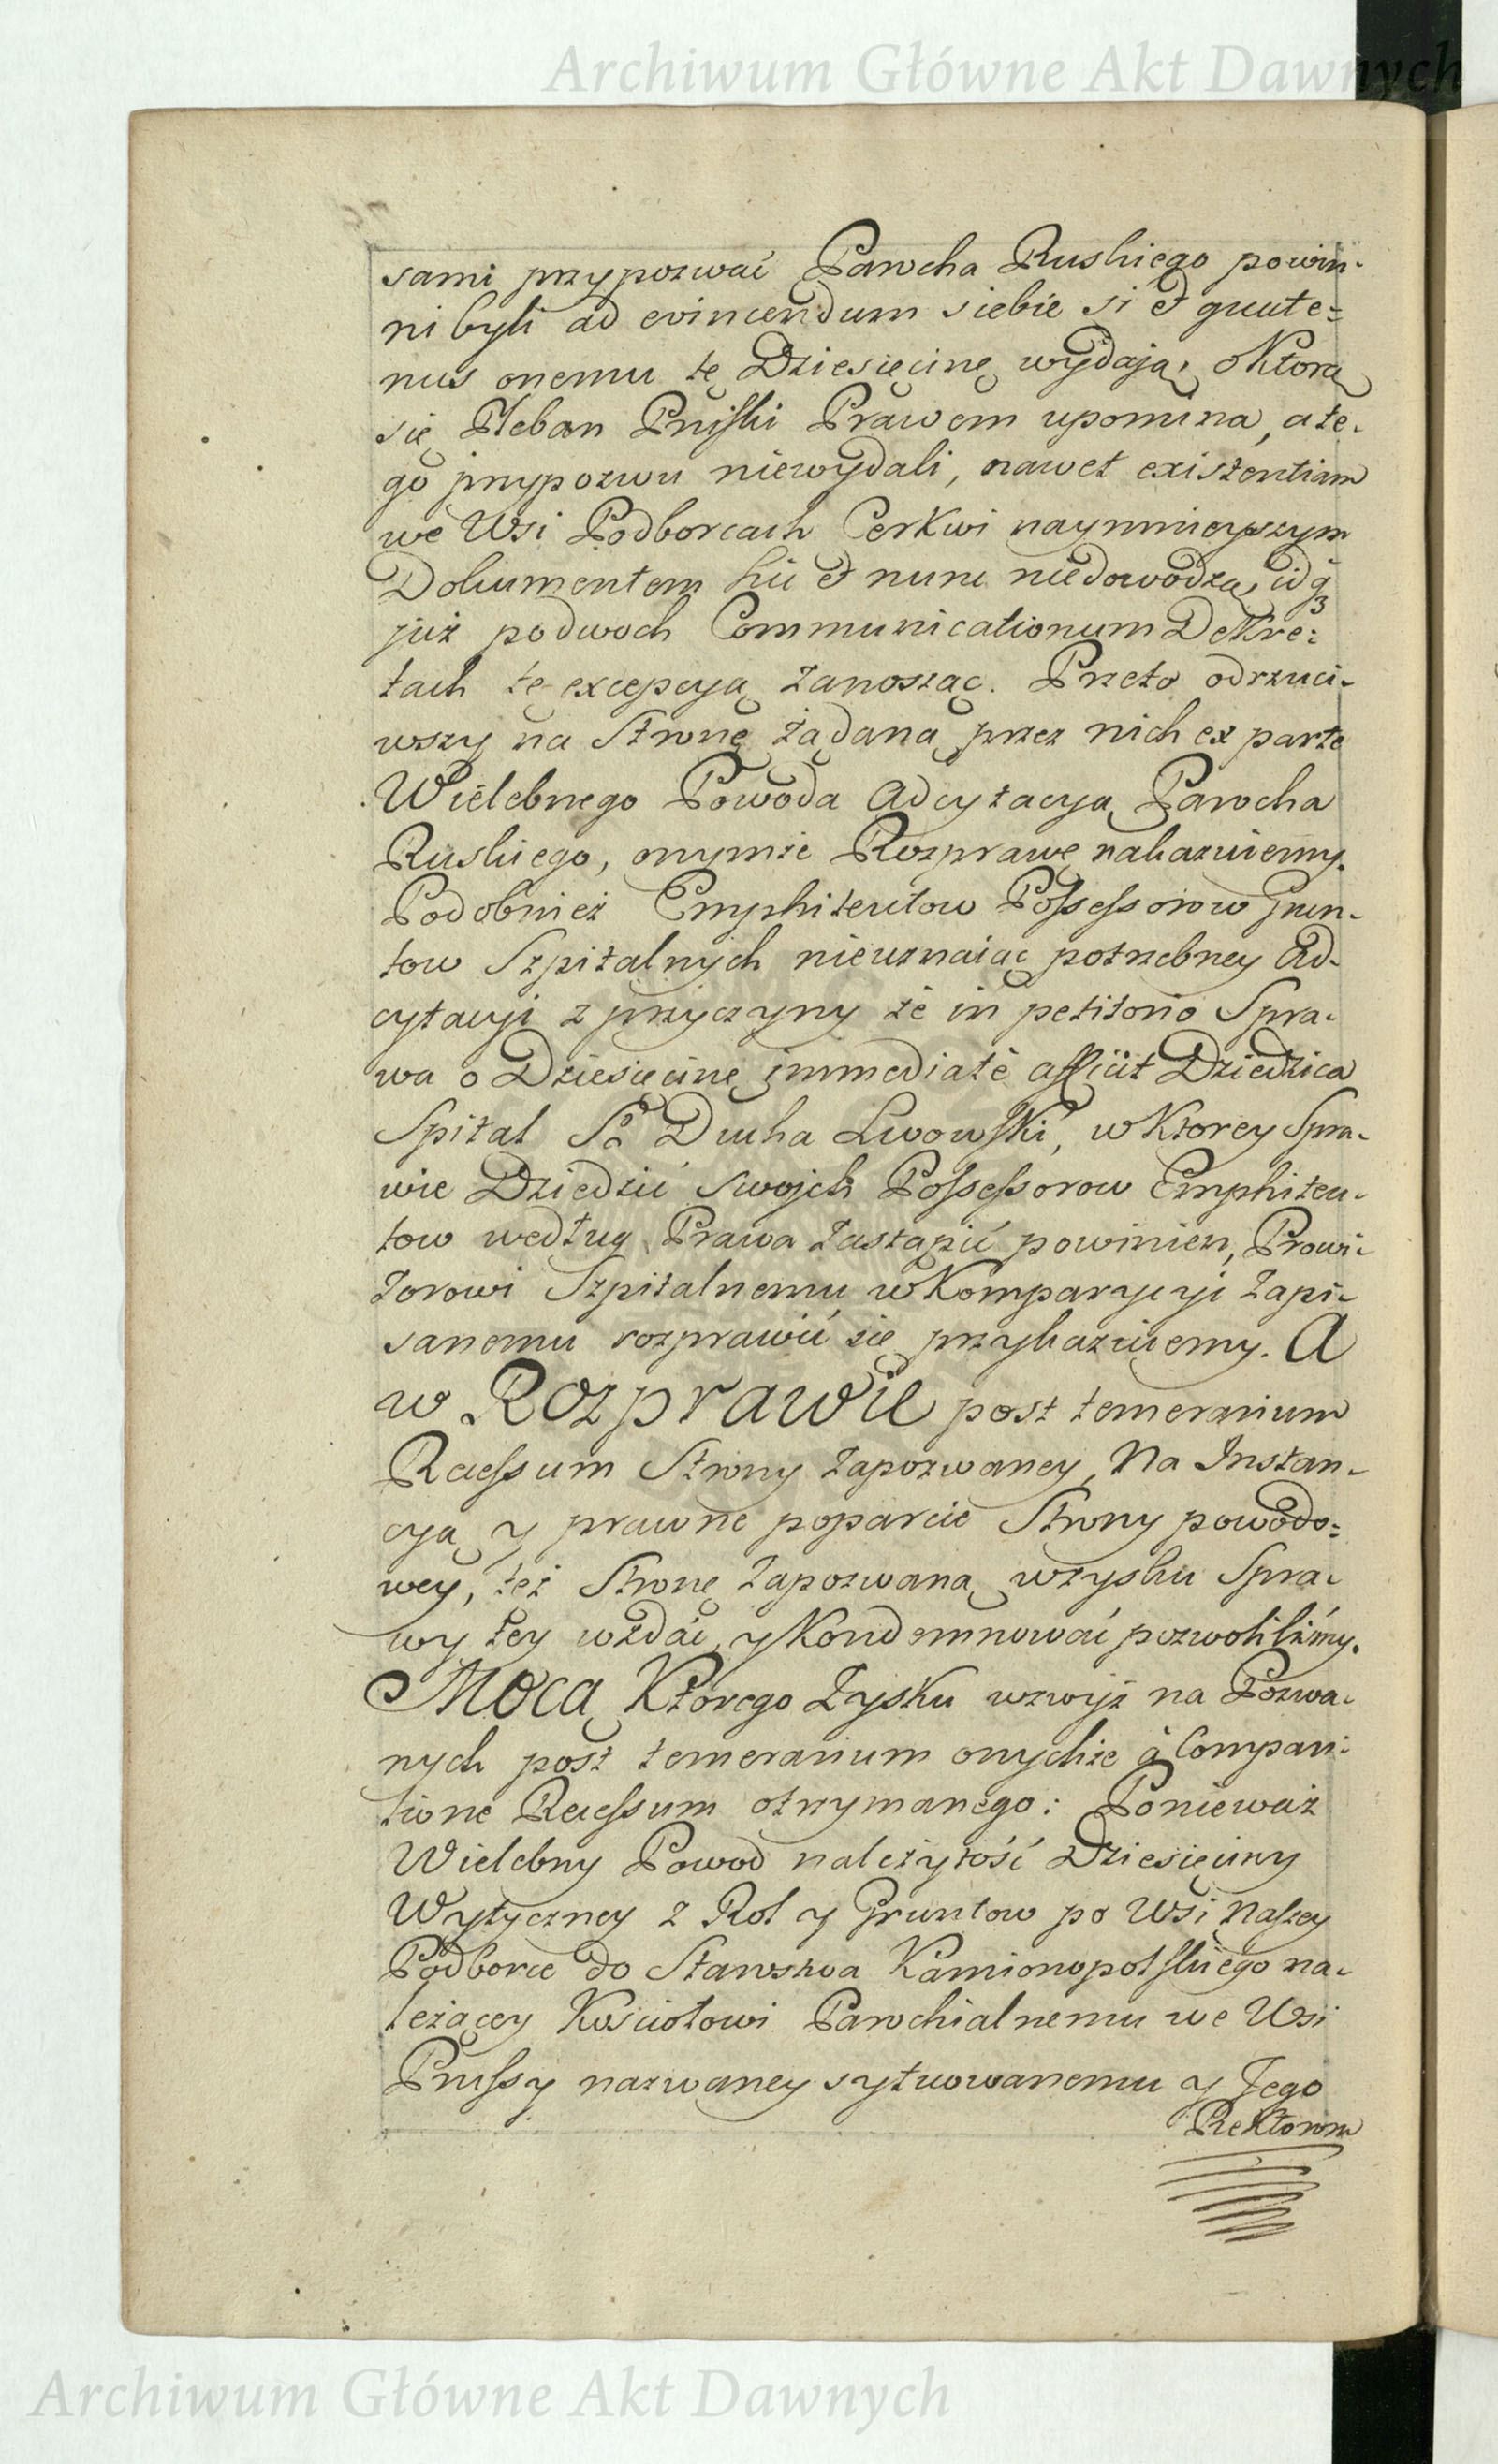 Archiwum Główne Akt Dawnych
sami przypozwać Parocha Ruskiego powin-
ni byli ad evincendum siebie si et quate=
nus onemu tę Dziesięcinę wydają, o Którą
się Pleban Pruski Prawem upomina, a te-
go przypozwu niewydali, nawet existentiam
we Wsi Podborcach Cerkwi naymnieyszym
Dokumentem hic et nunc niedowodzą, idq3
już podwoch Communicationum Dekre=
tach tę excepcyą zanosząc. Przeto odrzuci-
wszy na Stronę żądaną przez nich ex parte
Wielebnego Powoda Adcytacyą Parocha
Ruskiego, onymże Rozprawę nakazuiemy.
Podobnież Emphiteutow Possessorow Grun-
tow Szpitalnych nieuznaiąc potrzebney Ad-
cytacyi z przyczyny że in petitorio Spra-
wa o Dziesięcinę immediatè afficit Dziedzica
Spital S° Ducha Lwowski, w Ktorey Spra-
wie Dziedzić swojch Possessorow Emphiteu-
tow według Prawa zastąpić powinien, Prowi-
zorowi Szpitalnemu w Komparycyi zapi-
sanemu rozprawić się przykazuiemy. A
w Rozprawie post temerarium
Recessum Strony zapozwaney, Na Instan-
cyą y prawne poparcie Strony powodo=
wey, też Stronę zapozwaną wzysku Spra-
wy tey wzdać, y Kondemnować pozwoliliśmy.
Mocą Ktorego Zysku wzwyż na Pozwa-
nych post temerarium onychże à Compari-
tione Recessum otrzymanego: Ponieważ
Wielebny Powod należytość Dziesięciny
Wytyczney z Rol y Gruntow po Wsi Naszey
Podborce do Starostwa Kamionopolskiego na-
leżącey Kościołowi Parochialnemu we Wsi
Prussy nazwaney sytuowanemu y Jego
Rektorom
Archiwum Główne Akt Dawnych